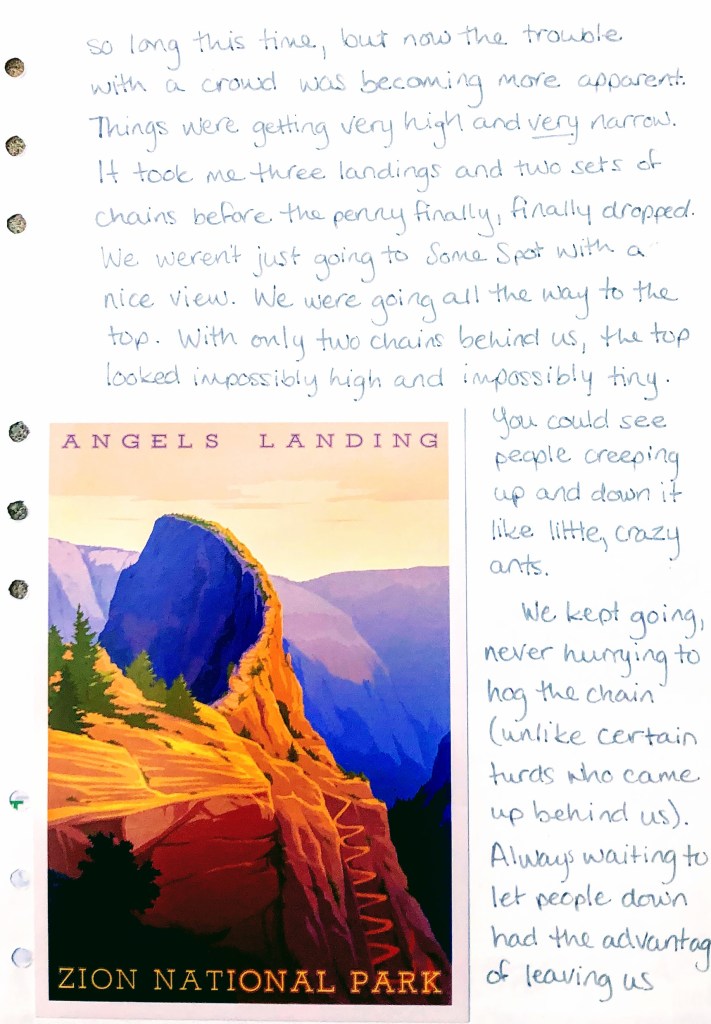 so long this time, but now the trouble
with a crowd was becoming more apparent.
Things were getting very high and very narrow.
It took me three landings and two sets of
chains before the penny finally, finally dropped.
We weren't just going to Some Spot with a
nice view. We were going all the way to the
top. With only two chains behind us, the top
looked impossibly high and impossibly tiny.
You could see
people creeping
up and down it
like little, crazy
ants.
We kept going,
never hurrying to
hog the chain
(unlike certain
turds who came
up behind us).
Always waiting to
let people down
had the advantag
of leaving us
ANGELS LANDING
ZION NATIONAL PARK